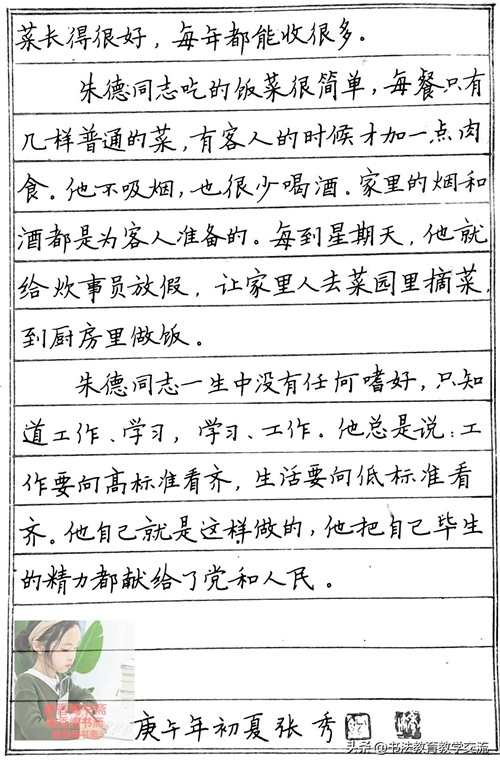 菜长得很好，每年都能收很多。
朱德同志吃的饭菜很简单，每餐只有
几样普通的菜，有客人的时候才加一点肉
食。他不吸烟，也很少喝酒。家里的烟和
酒都是为客人准备的。每到星期天，他就
给炊事员放假，让家里人去菜园里摘菜，
到厨房里做饭。
朱德同志一生中没有任何嗜好，只知
道工作、学习，学习、工作。他总是说：工
作要向高标准看齐，生活要向低标准看
齐。他自己就是这样做的，他把自己毕生
的精力都献给了党和人民。
庚午年初夏张秀
头条@书法教育教学交流